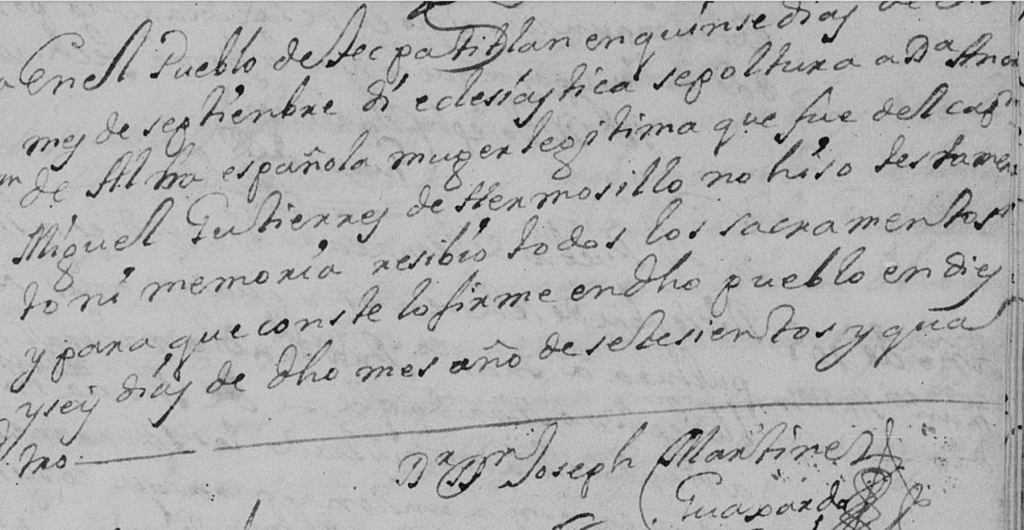 En el Pueblo de tecpatitlan en quinse dias de
mes de septienbre di eclesiastica sepoltura a Da Ana
de Alba española muger legitima que fue del capn
Miguel Gutierres de Hermosillo no hiso testamen
to ni memoria resibio todos los sacramentos
y para que conste lo firme en dho pueblo en dies
y seis dias de dho mes año de setesientos y qua
tro
Br Dn Joseph Martines
Guaxardo